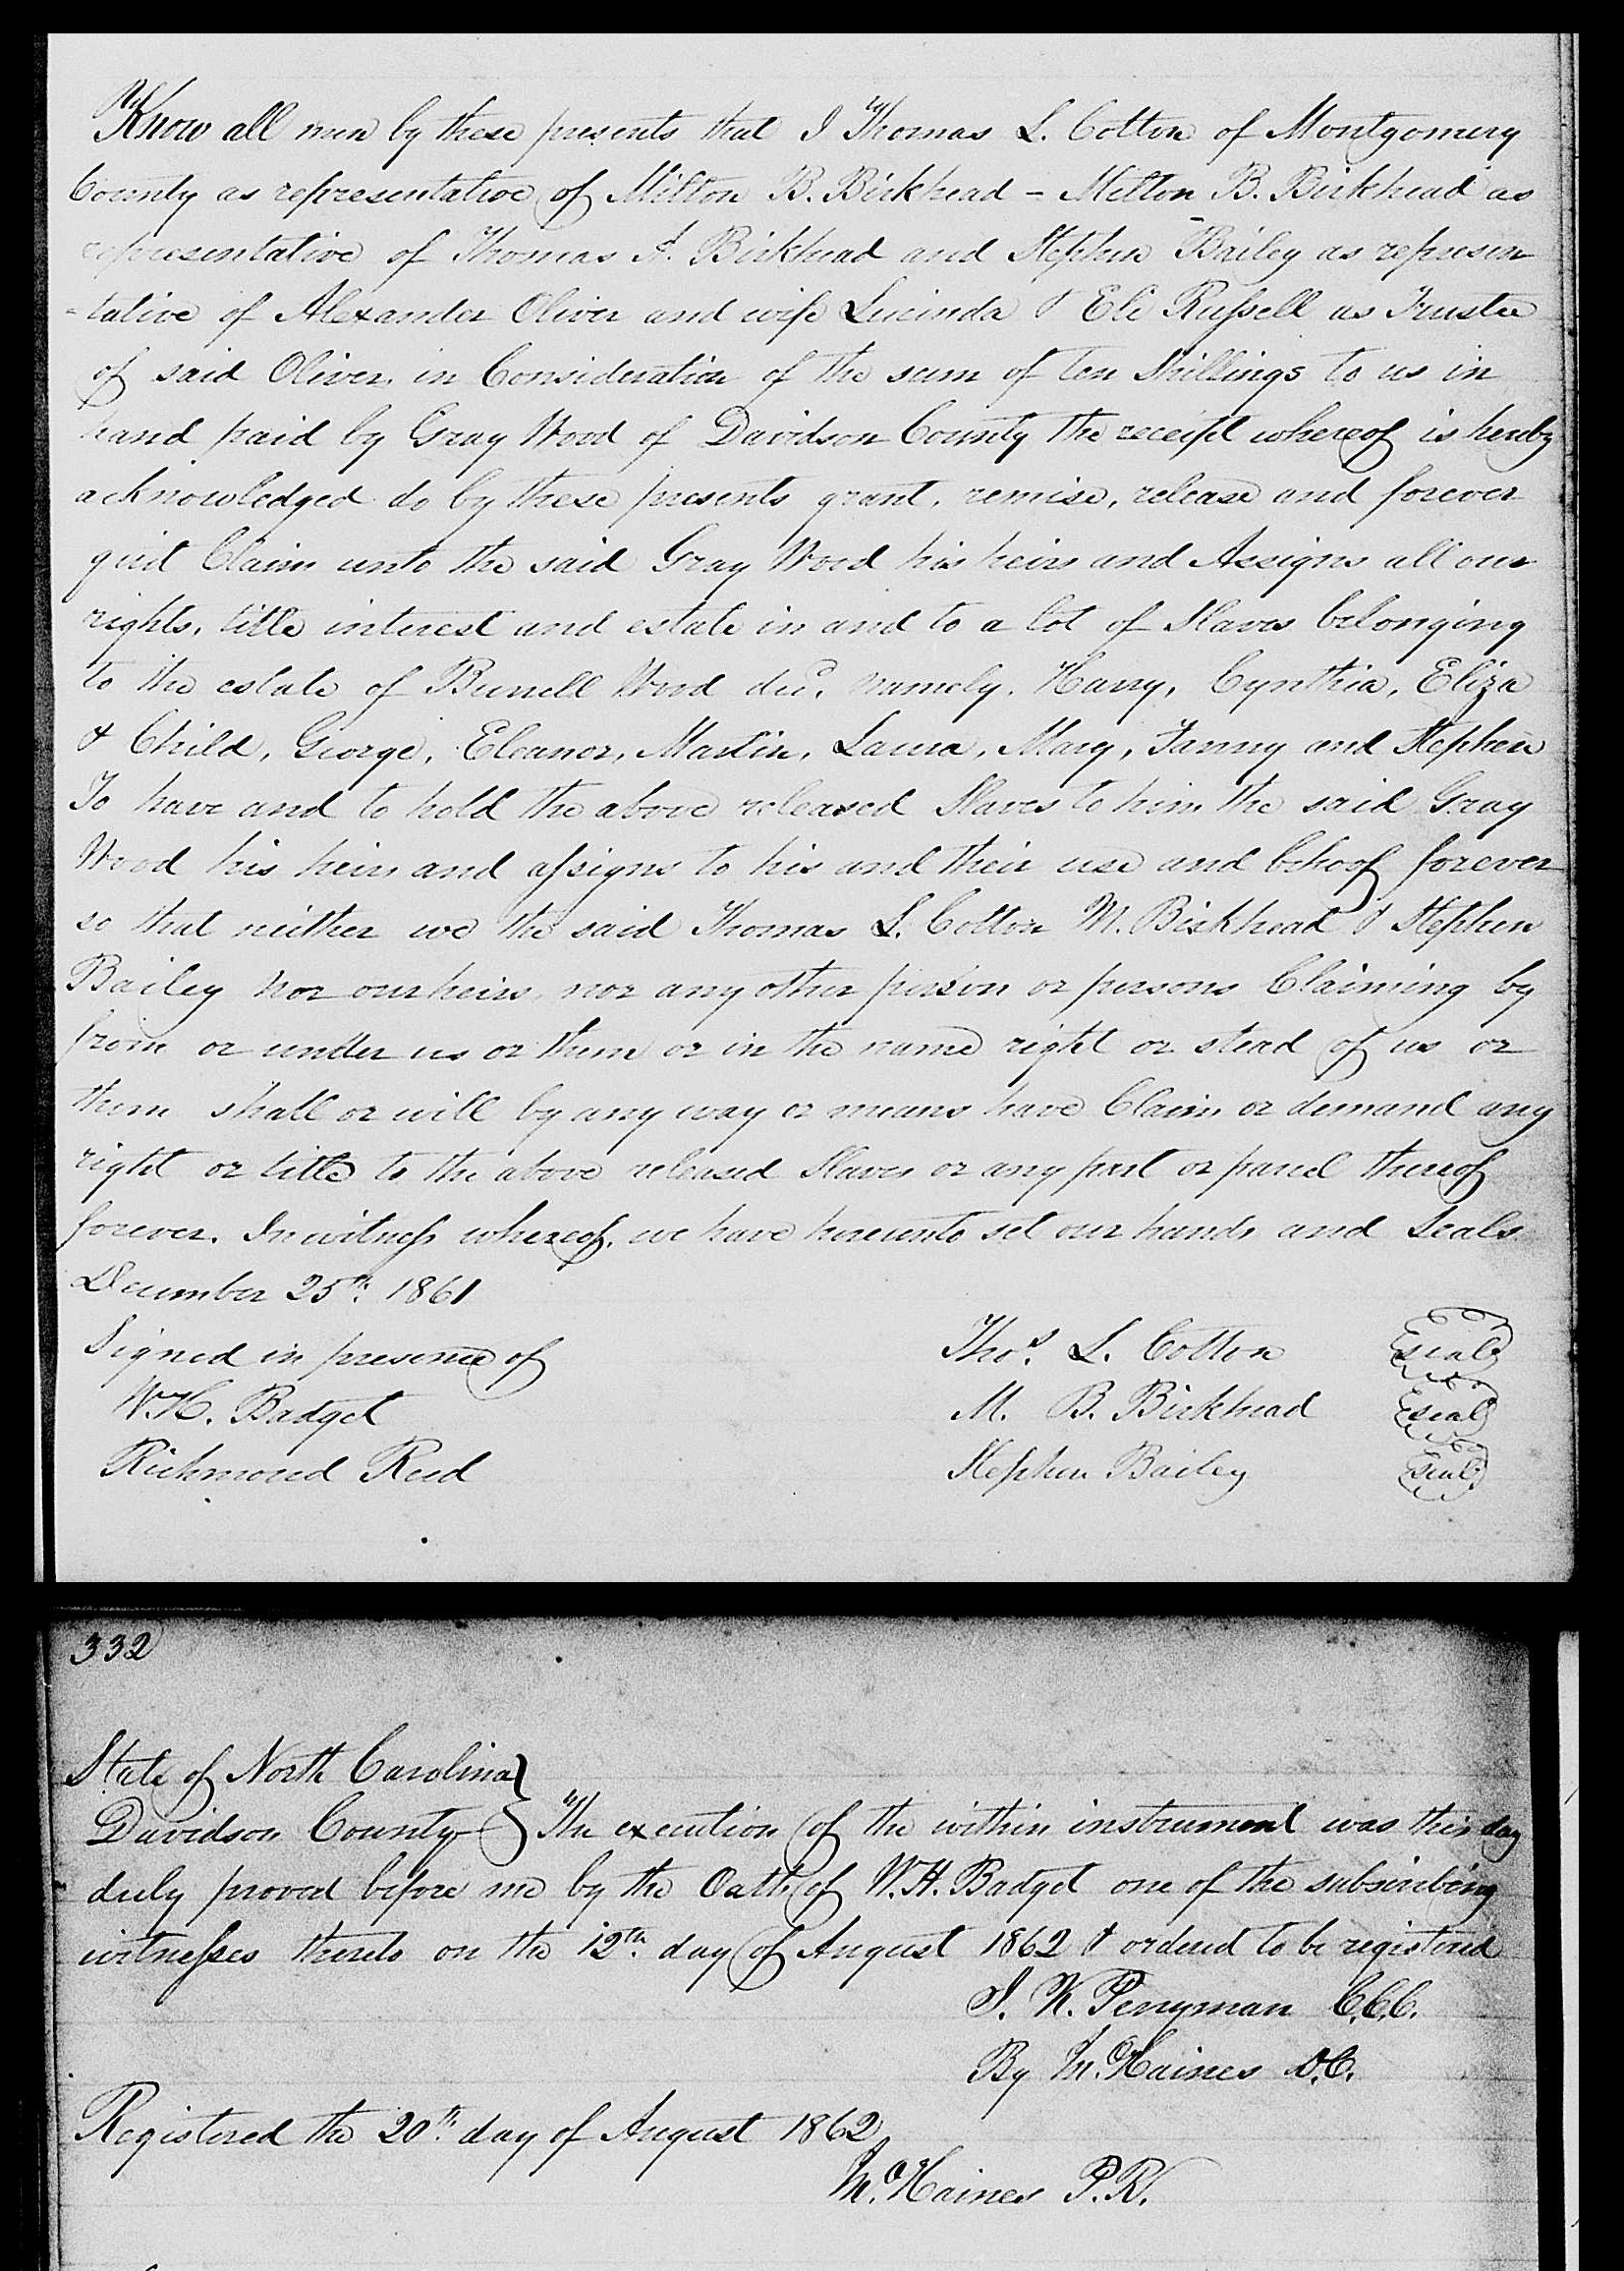 Know all men by these presents that I Thomas L. Cotton of Montgomery
County as representative of Milton B. Birkhead - Milton B. Birkhead as
representative of Thomas A. Birkhead and Stephen Bailey as represen
-tative of Alexander Oliver and wife Lucinda & Eli Russell as Trustee
of said Oliver, in Consideration of the sum of ten Shillings to us in
hand paid by Gray Wood of Davidson County the receipt whereof is hereby
acknowledged do by these presents grant, remise, release and forever
quit Claim unto the said Gray Wood his heirs and Assigns all our
rights, title interest and estate in and to a lot of Slaves belonging
to the estate of Burrell Wood decd. namely, Harry, Cynthia, Eliza
& Child, George, Eleanor, Martin, Laura, Mary, Fanny and Stephen
To have and to hold the above released Slaves to him the said Gray
Wood his heirs and assigns to his and their use and behoof forever
so that neither we the said Thomas L. Cotton M. Birkhead & Stephen
Bailey nor our heirs, nor any other person or persons Claiming by
from or under us or them or in the name right or stead of us or
them shall or will by any way or means have Claim or demand any
right or title to the above released Slaves or any part or parcel thereof
forever. In witness whereof, we have hereunto set our hands and Seals
December 25th. 1861
Signed in presence of Thos. L. Cotton seal
W.H. Badget M. B. Birkhead seal
Richmond Reed Stephen Bailey seal
332
State of North Carolina
Davidson County The execution of the within instrument was this day
duly proved before me by the Oath of W.H. Badget one of the subscribing
witnesses thereto on the 12th. day of August 1862 & ordered to be registered
I. K. Perryman C.C.C.
By M. Haines D.C.
Registered the 20th. day of August 1862
M. Haines P.R.